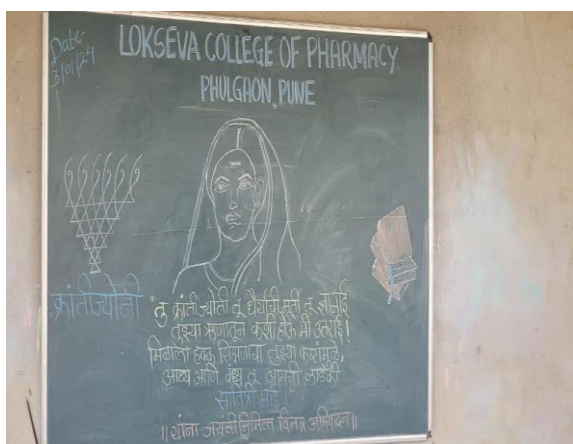 Date-
3/01/24
LOKSEVA COLLEGE OF PHARMACY
PHULGAON, PUNE
क्रांतीज्योती
"तु क्रांतीज्योती तू धैर्याची मूर्ती तू
तुझ्या ऋणातून कशी होऊ मी उतराई!
मिळाला हक्क शिक्षणाचा तुझ्या कष्टांमुळे,
आद्य आणि वंद्य तू आमची लाडकी
"
||यांना जयंती निमित्त विनम्र अभिवादन||